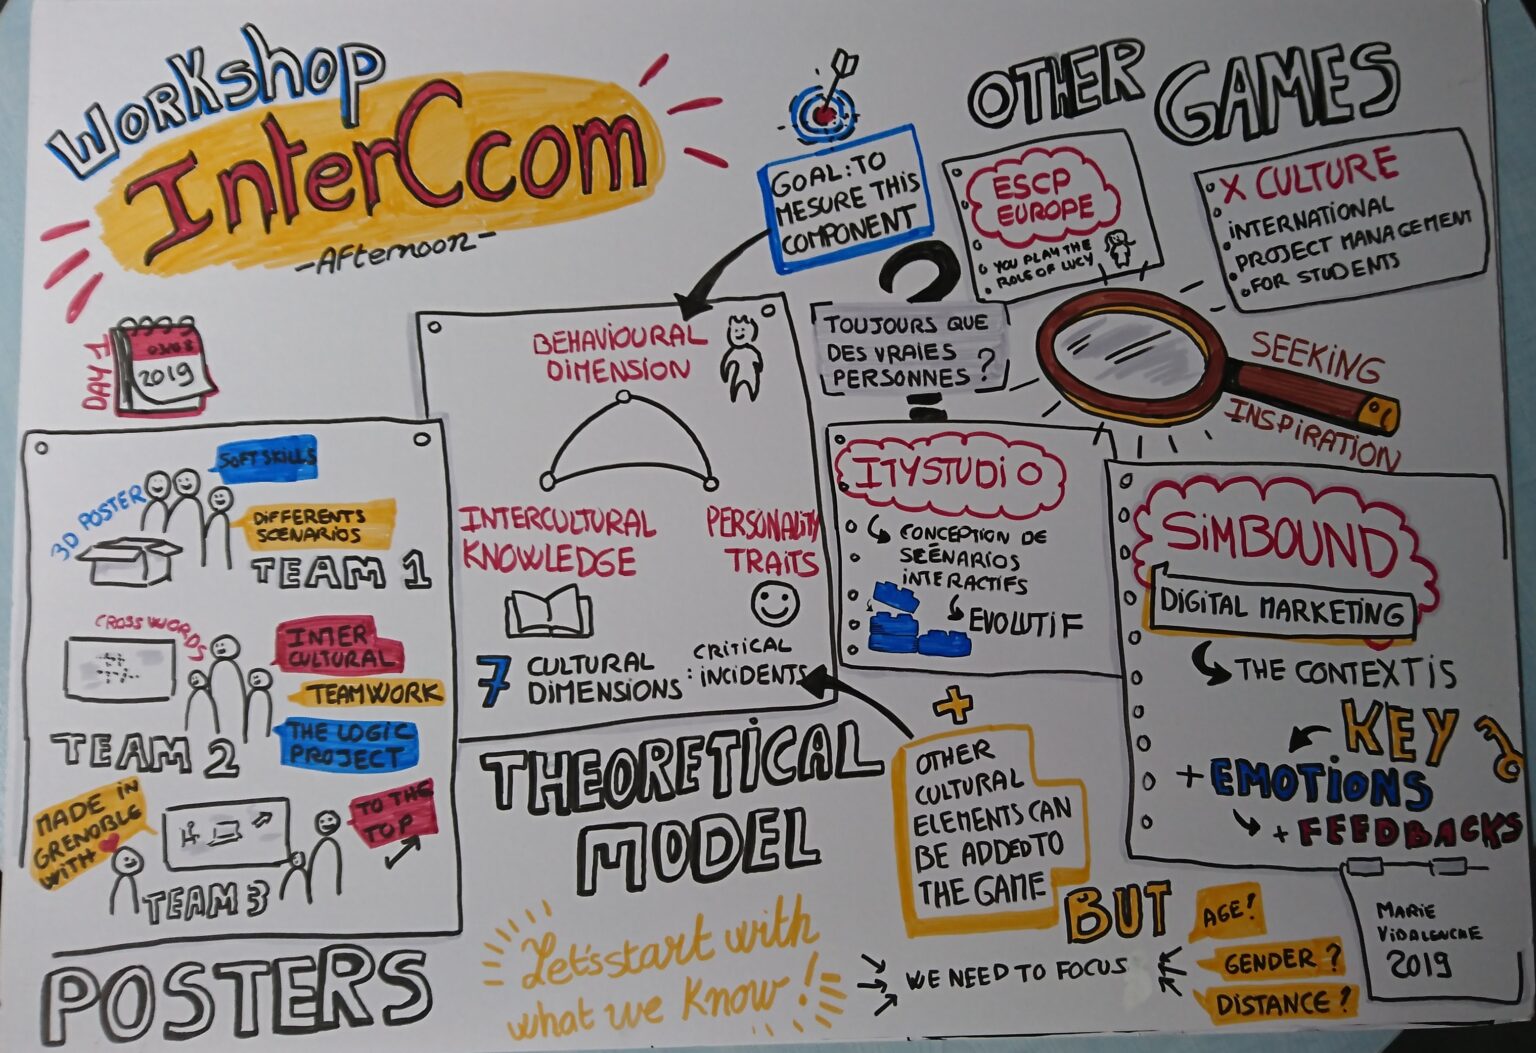 Workshop
InterCcom
-Afternoon-
DAY 1
03/08
2019
SOFT SKILLS
3D POSTER
DIFFERENTS
SCENARIOS
TEAM 1
CROSS WORDS
INTER
CULTURAL
TEAMWORK
THE LOGIC
PROJECT
TEAM 2
MADE IN
GRENOBLE
WITH
TO THE
TOP
TEAM 3
POSTERS
GOAL: TO
MESURE THIS
COMPONENT
BEHAVIOURAL
DIMENSION
INTERCULTURAL
KNOWLEDGE
PERSONALITY
TRAITS
7 CULTURAL
DIMENSIONS
CRITICAL
: INCIDENTS
THEORETICAL
MODEL
Let's start with
what we know!
OTHER GAMES
ESCP
EUROPE
YOU PLAY THE
ROLE OF LUCY
X CULTURE
INTERNATIONAL
PROJECT MANAGEMENT
FOR STUDENTS
?
TOUJOURS QUE
DES VRAIES
PERSONNES ?
SEEKING
INSPIRATION
ITYSTUDIO
CONCEPTION DE
SCÉNARIOS
INTERACTIFS
EVOLUTIF
SIMBOUND
DIGITAL MARKETING
THE CONTEXT IS
KEY
+ EMOTIONS
+ FEEDBACKS
+
OTHER
CULTURAL
ELEMENTS CAN
BE ADDED TO
THE GAME
BUT
WE NEED TO FOCUS
AGE!
GENDER ?
DISTANCE ?
MARIE
VIDALENCHE
2019